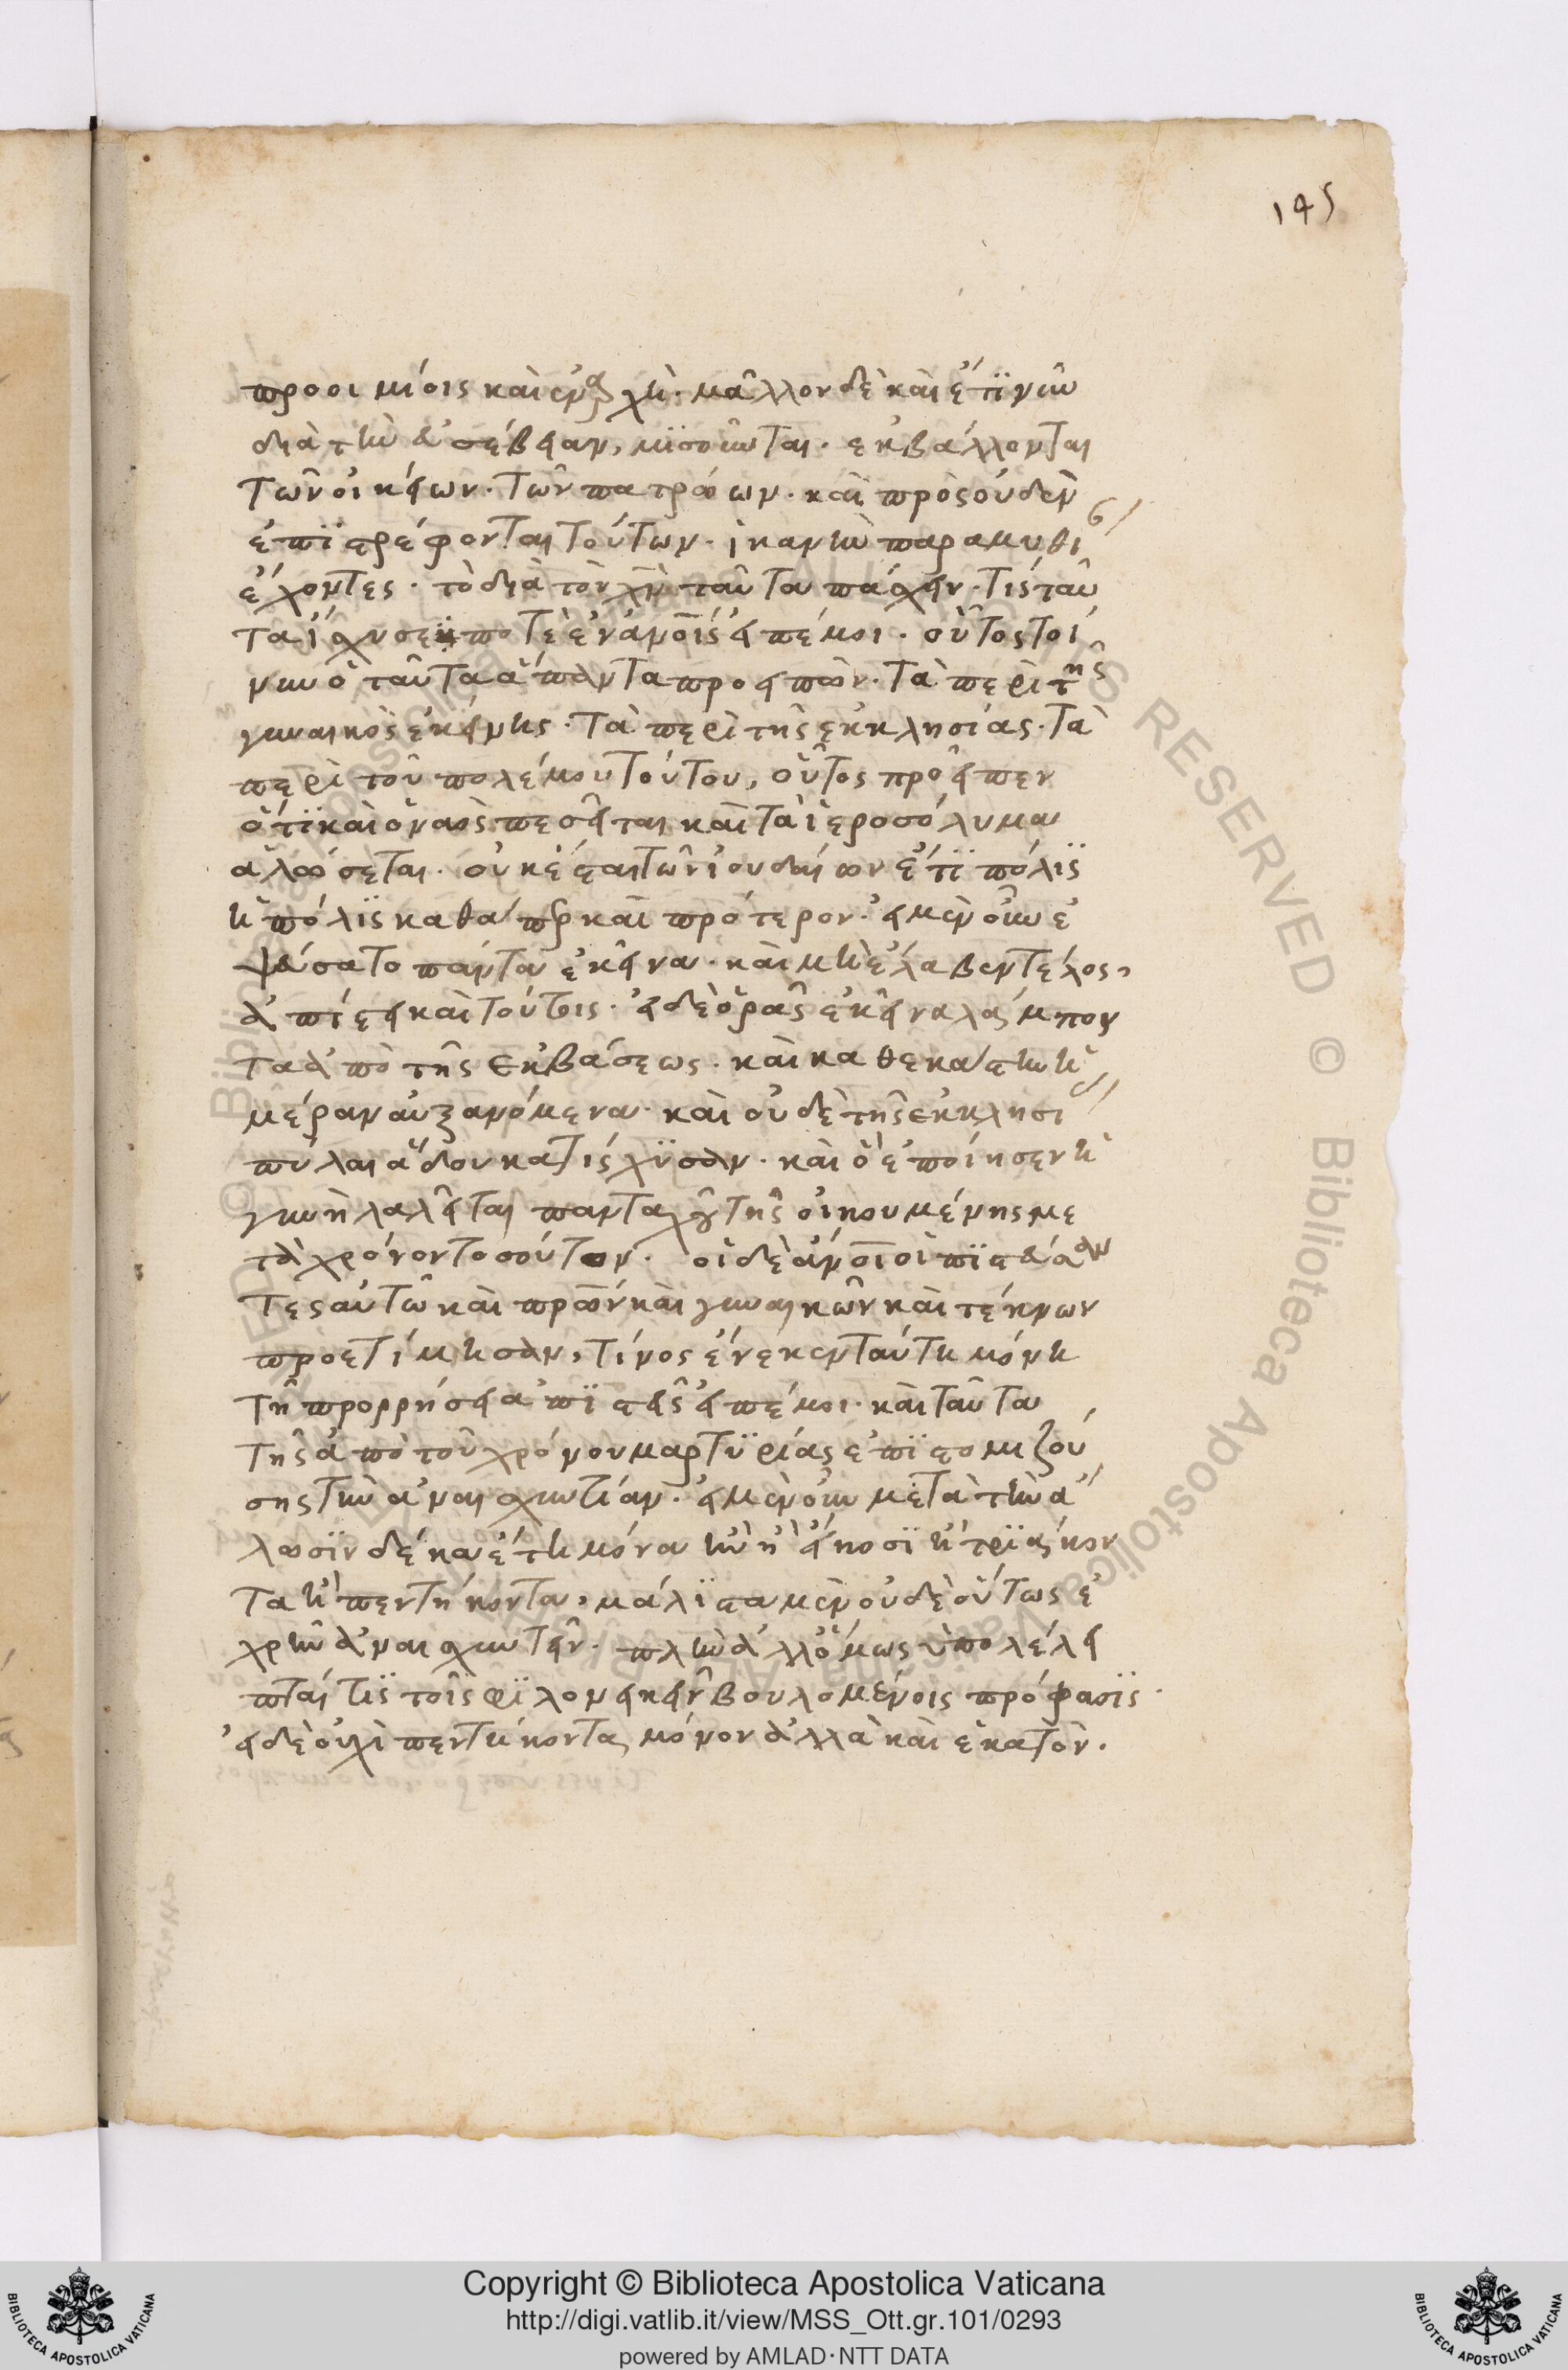 145
προοιμίοις καὶ ἐν ἀρχῆ· μᾶλλον δὲ καὶ ἔτι νῦν
διὰ τὴν εὐσέβειαν, μισοῦνται· ἐκβάλλονται
τῶν οἰκείων· τῶν πατρώων· καὶ πρὸς οὐδὲν
ἐπιστρέφονται τούτων· ἱκανὴν παραμυθί
ἔχοντες· τὸ διὰ τὸν χν ταῦτα πάσχειν· τίς ταῦ
τα ἴσχυσε ποτὲ ἐν ανοις εἰπέ μοι· οὗτος τοί
νυν ὁ ταῦτα ἅπαντα προειπὼν· τὰ περὶ τῆς
γυναικὸς ἐκείνης· τὰ περὶ τῆς ἐκκλησίας· τὰ
περὶ τοῦ πολέμου τούτου, οὗτος προεῖπεν
ὅτι καὶ ὁ ναὸς πεσεῖται καὶ τὰ ἱεροσόλυμα
ἁλώσεται· οὐκ ἔσται τῶν ἰουδαίων ἔτι πόλις
ἡ πόλις καθάπερ καὶ πρότερον· εἰ μὲν οὖν ἐ
ψεύσατο πάντα ἐκεῖνα· καὶ μὴ ἔλαβεν τέλος,
ἀπίστει καὶ τούτοις· εἰ δὲ ὁρᾶς ἐκεῖνα λάμπον
τα ἀπὸ τῆς ἐκβάσεως· καὶ καθεκάστην ἡ
μέραν αὐξανόμενα· καὶ οὐδὲ τῆς ἐκκλησί
πύλαι ἅδου κατισχύσαν· καὶ ὃ ἐποίησεν ἡ
γυνὴ λαλεῖται πανταχοῦ τῆς οἰκουμένης με
τὰ χρόνον τοσοῦτον· οἱ δὲ ανοι οἱ πιστεύσαν
τες αὐτῶ καὶ πρων καὶ γυναικῶν καὶ τέκνων
προετίμησαν, τίνος ἕνεκεν ταύτη μόνη
τῆ προρρήσει ἀπιστεῖς εἰπέ μοι· καὶ ταῦτα
τῆς ἀπὸ τοῦ χρόνου μαρτυρίας ἐπιστομιζού
σης τὴν ἀναισχυντίαν· εἰ μὲν οὖν μετὰ τὴν ἅ
λωσιν δέκα ἔτη μόνα ἦν ἢ εἴκοσι ἢ τριάκον
τα ἢ πεντήκοντα, μάλιστα μὲν οὐδὲ οὕτως ἐ
χρῆν ἀναισχυντεῖν· πλὴν ἀλλόμως ὑπολέλει
πταί τις τοῖς φιλονεικεῖν βουλομένοις πρόφασις·
εἰ δὲ οὐχὶ πεντήκοντα μόνον ἀλλὰ καὶ ἑκατὸν·
Copyright © Biblioteca Apostolica Vaticana
http://digi.vatlib.it/view/MSS_Ott.gr.101/0293
powered by AMLAD·NTT DATA